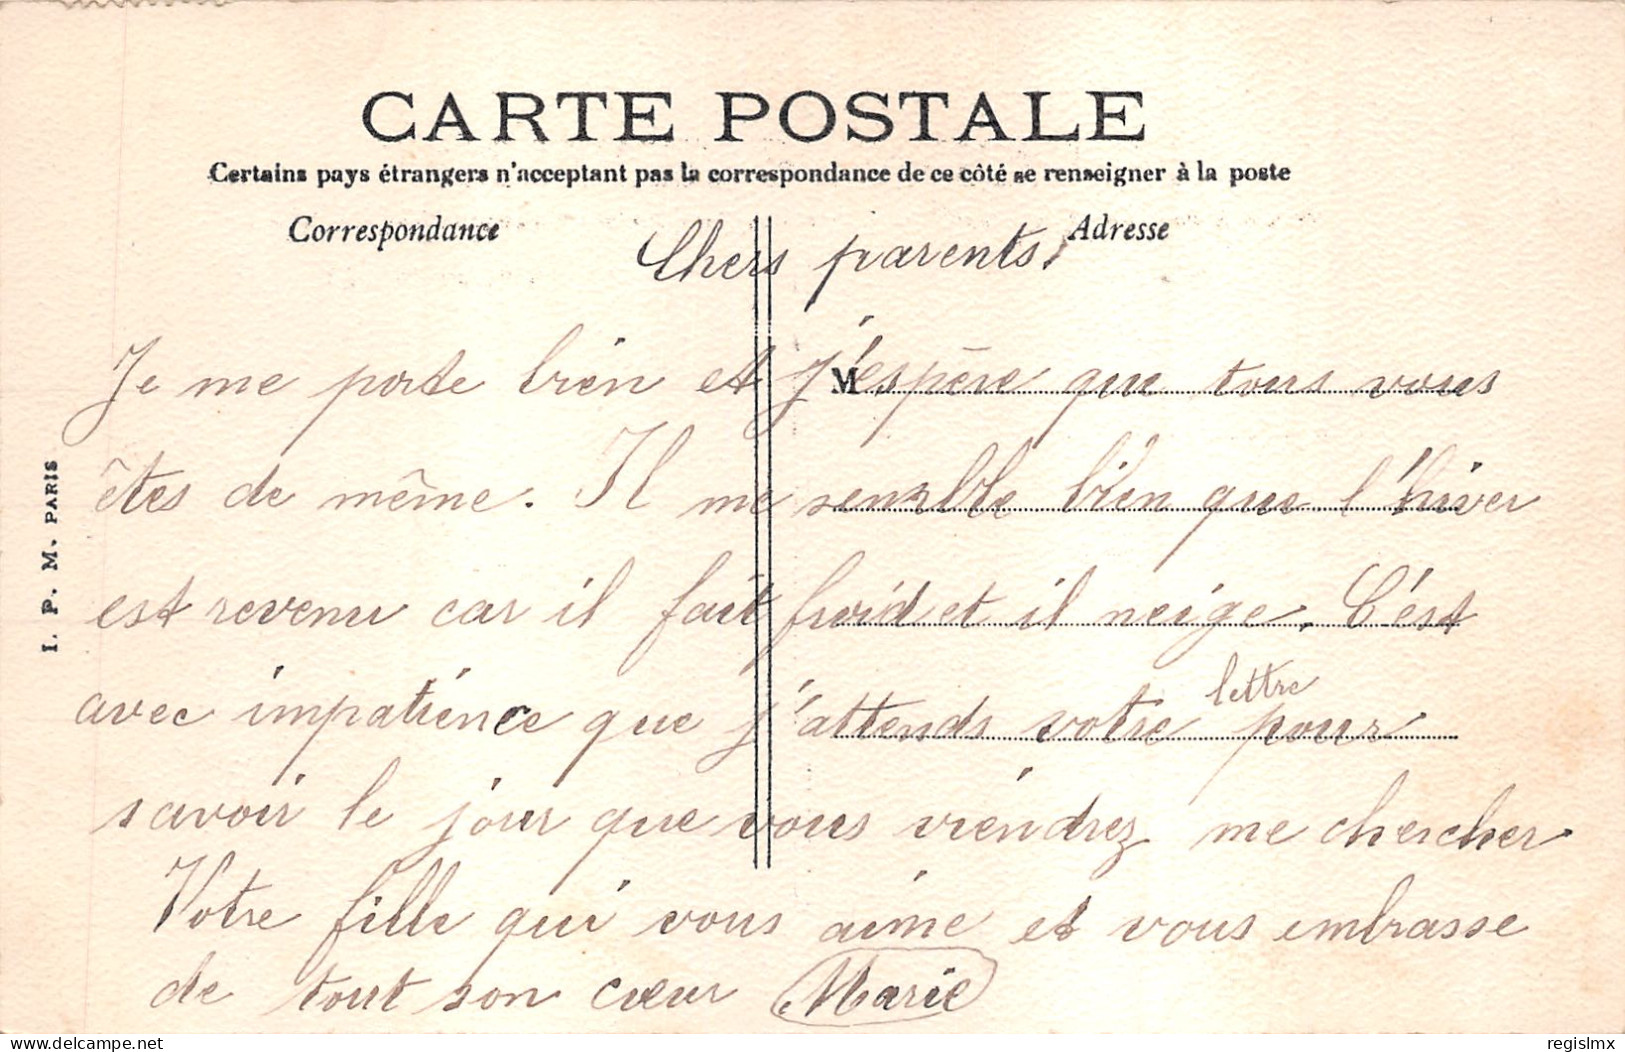 CARTE POSTALE
Certains pays étrangers n'acceptant pas la correspondance de ce côté se renseigner à la poste
Correspondance
Adresse
Chers parents,
Je me porte bien et j'éspère que tous vous
M
êtes de même. Il me semble bien que l'hiver
est revenu car il fait froid et il neige. C'est
avec impatience que j'attends votre lettre pour
savoir le jour que vous viendrez me chercher
Votre fille qui vous aime et vous embrasse
de tout son cœur Marie
I. P. M. PARIS
delcampe.net
regislmx